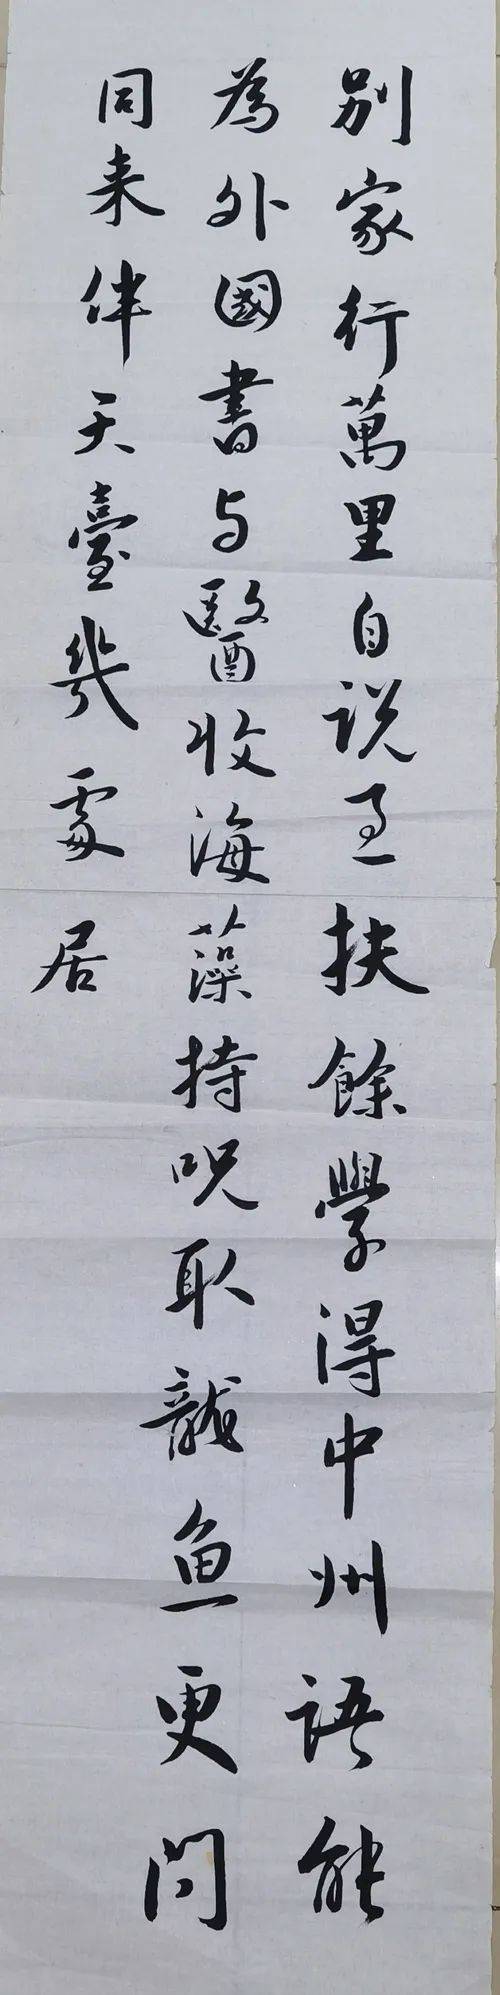 別家行萬里自説过扶餘學得中州語能
為外國書与醫收海藻持呪取龍魚更問
同来伴天臺幾處居